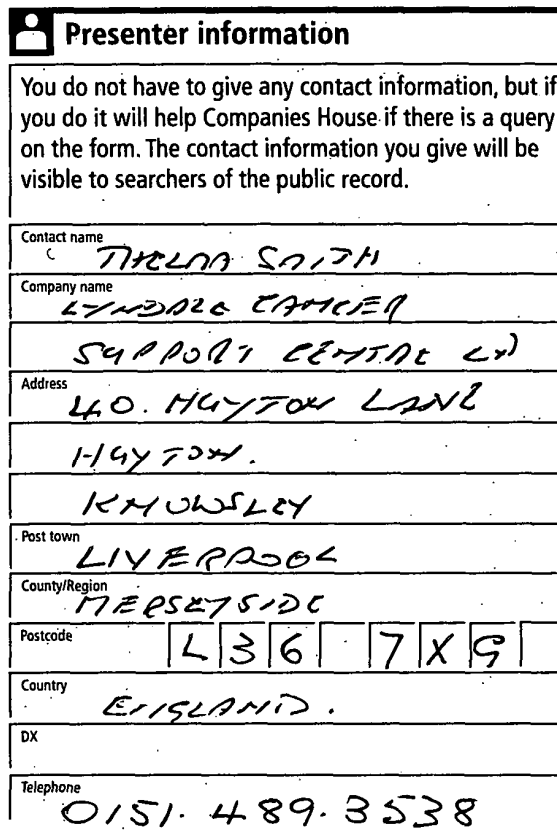 Presenter information
You do not have to give any contact information, but if
you do it will help Companies House if there is a query
on the form. The contact information you give will be
visible to searchers of the public record.
Contact name
THELMA SMITH
Company name
LYNDALE CANCER
SUPPORT CENTRE LTD
Address
40. HUYTON LANE
HUYTON.
KNOWSLEY
Post town
LIVERPOOL
County/Region
MERSEYSIDE
Postcode
L36 7XG
Country
ENGLAND.
DX
Telephone
0151. 489. 3538